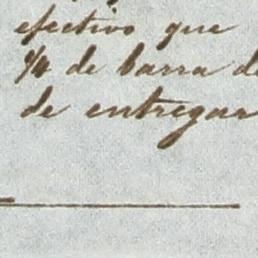 efectivo que
1/4 de barra de
de entregar